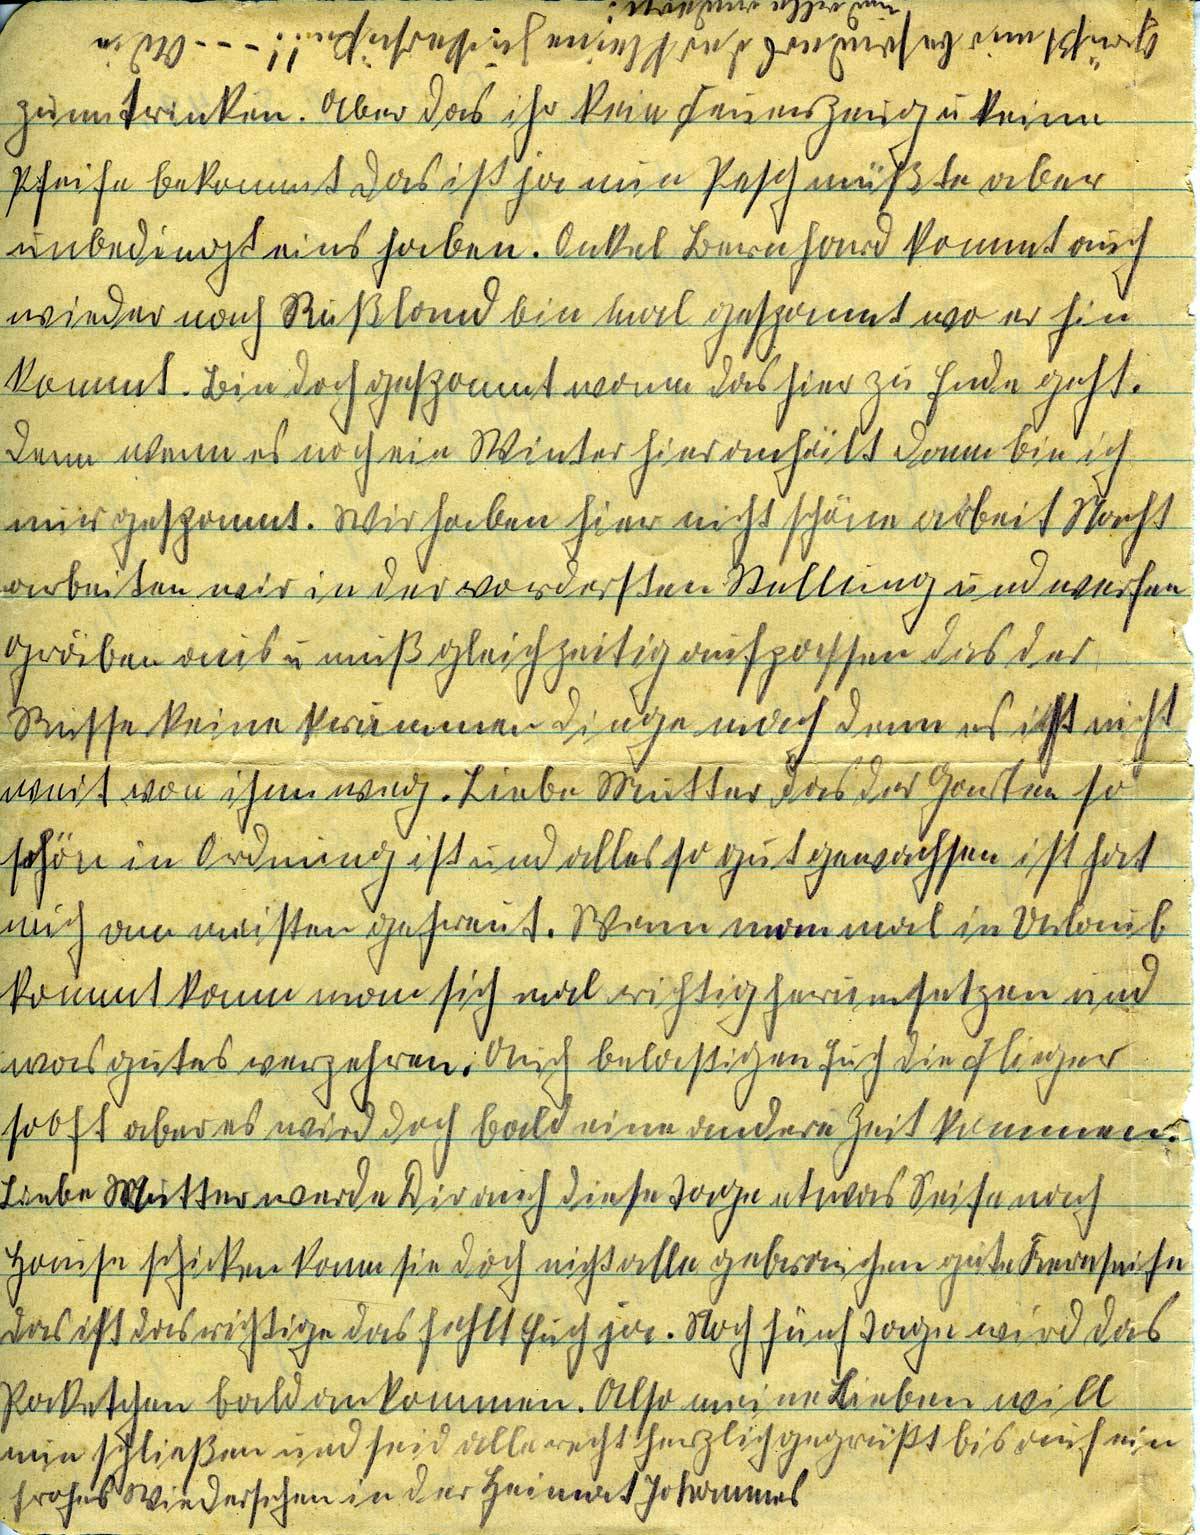 zum trinken. Aber das ihr kein Feuerszeug u keine
Pfeife bekommt das ist ja nun Pesch müßte aber
unbedingt eins haben. Onkel Bernhard kommt auch
wieder nach Rußland bin mal gespannt wo er hin
kommt. Bin doch gespannt wann das hier zu Ende geht.
Denn wenn es noch ein Winter hier anhält dann bin ich
mir gespannt. Wir haben hier nicht schöne arbeit Nacht
arbeiten wir in der vordersten Stellung und werfen
gräben aus u muß gleichzeitig aufpassen das der
Russe keine krummen Dinge mach denn es ist nicht
weit von ihm weg. Liebe Mutter das der Garten so
schön in Ordnung ist und alles so gut gewachsen ist hat
mich am meisten gefreut. Wenn man mal in Urlaub
kommt kann man sich mal richtig herum setzen und
was gutes verzehren. Auch belästigen Euch die Flieger
so oft aber es wird doch bald eine andere Zeit kommen.
Liebe Mutter werde Dir auch diese Tage etwas Seife nach
Hause schicken kann sie doch nicht alle gebrauchen gute Kernseife
das ist das richtige das fehlt Euch ja. Noch fünf Tage wird das
Paketchen bald ankommen. Also meine Lieben will
nun schließen und seid alle recht herzlich gegrüßt bis auf ein
frohes Wiedersehen in der Heimat Johannes
Grüßt mir besonders das kleine
und alle anderen!